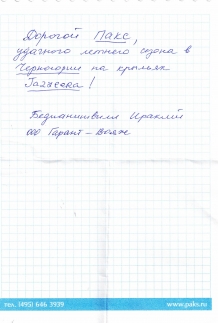 Дорогой Пакс,
удачного летнего сезона в
Черногории на крыльях
!
Бедианашвили Ираклий
ООО Гарант-Вояж
тел. (495) 646 3939
www.paks.ru